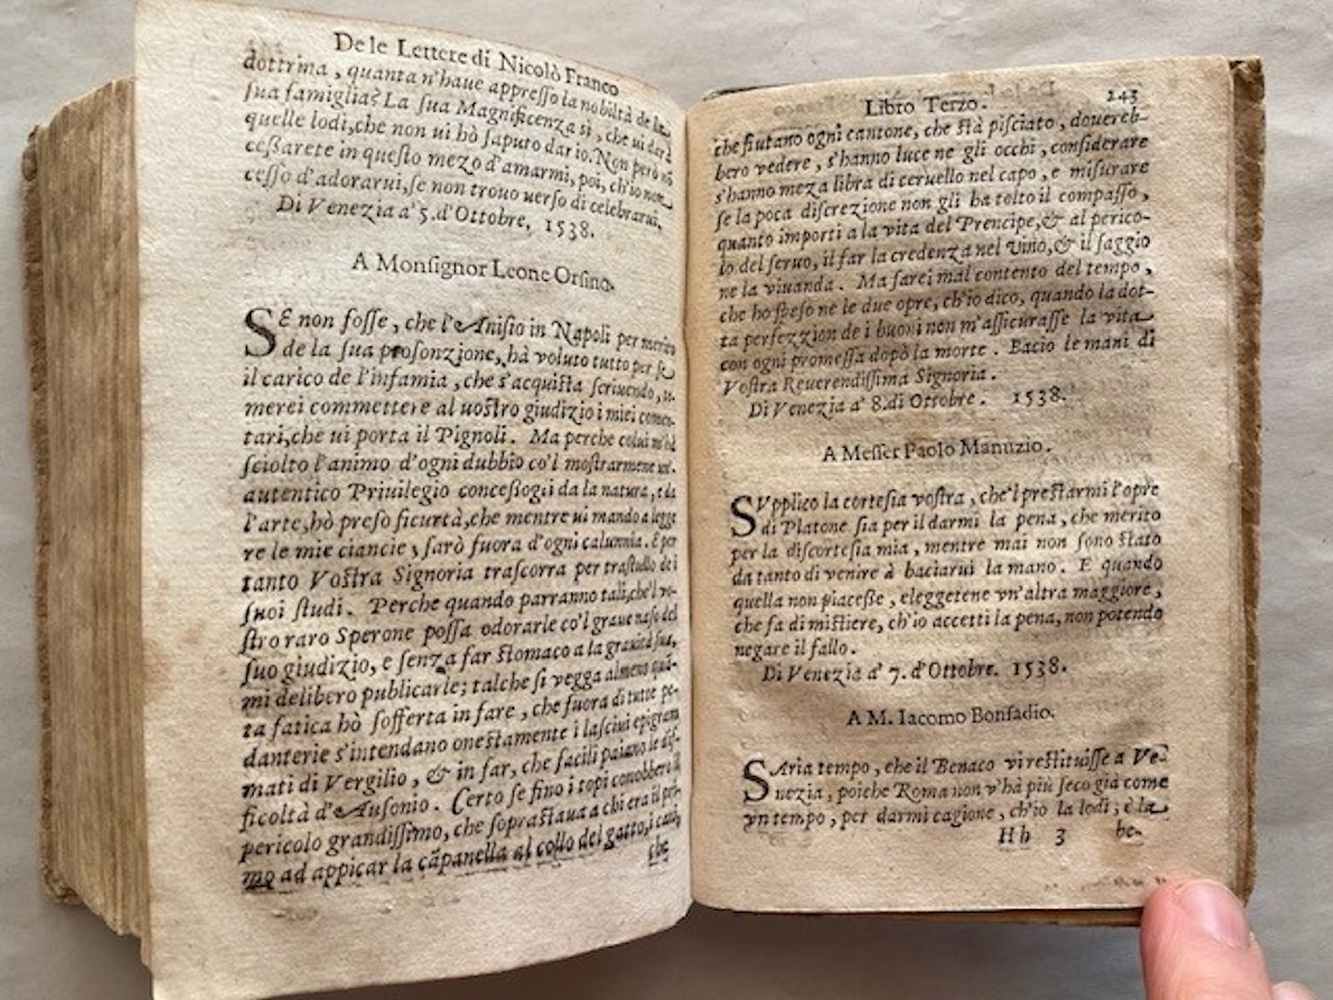 De le Lettere di Nicolò Franco
dottrina, quanta n'haue appresso la nobiltà de la
sua famiglia? La sua Magnificenza si, che ui darà
quelle lodi, che non ui hò saputo dar io. Non però nò
cessarete in questo mezo d'amarmi, poi, ch'io non
cesso d'adorarui, se non trouo uerso di celebrarui.
Di Venezia a' 5. d'Ottobre, 1538.
A Monsignor Leone Orsino.
SE non fosse, che l'Anisio in Napoli per merito
de la sua prosonzione, hà voluto tutto per se
il carico de l'infamia, che s'acquista scriuendo, te-
merei commettere al uostro giudizio i miei comen-
tari, che ui porta il Pignoli. Ma perche colui m'hà
sciolto l'animo d'ogni dubbio co'l mostrarmene un'
autentico Priuilegio concessogli da la natura, e da
l'arte, hò preso sicurtà, che mentre ui mando a legge
re le mie ciancie, sarò fuora d'ogni calunnia. E per
tanto Vostra Signoria trascorra per trastullo dei
suoi studi. Perche quando parranno tali, che'l vo-
stro raro Sperone possa odorarle co'l graue naso del
suo giudizio, e senza far stomaco a la grauità sua,
mi delibero publicarle; talche si vegga almeno quā-
ta fatica hò sofferta in fare, che fuora di tutte pe-
danterie s'intendano onestamente i lasciui epigram
mati di Vergilio, & in far, che facili paiano le dif-
ficoltà d'Ausonio. Certo se fino i topi conobbero il
pericolo grandissimo, che soprastaua a chi era il pri-
mo ad appicar la cāpanella al collo del gatto, i cani,
che
Libro Terzo. 243
che fiutano ogni cantone, che stà pisciato, douereb-
bero vedere, s'hanno luce ne gli occhi, considerare
s'hanno meza libra di ceruello nel capo, e misurare
se la poca discrezione non gli ha tolto il compasso,
quanto importi a la vita del Prencipe, & al perico-
lo del seruo, il far la credenza nel vino, & il saggio
ne la viuanda. Ma sarei mal contento del tempo,
che ho speso ne le due opre, ch'io dico, quando la dot-
ta perfezzion de i buoni non m'assicurasse la vita
con ogni promessa dopò la morte. Bacio le mani di
Vostra Reuerendissima Signoria.
Di Venezia a' 8. di Ottobre. 1538.
A Messer Paolo Manuzio.
SVpplico la cortesia vostra, che'l prestarmi l'opre
di Platone sia per il darmi la pena, che merito
per la discortesia mia, mentre mai non sono stato
da tanto di venire à baciarui la mano. E quando
quella non piacesse, eleggetene vn'altra maggiore,
che fa di mistiere, ch'io accetti la pena, non potendo
negare il fallo.
Di Venezia a' 7. d'Ottobre. 1538.
A M. Iacomo Bonfadio.
SAria tempo, che il Benaco vi restituisse a Ve-
nezia, poiche Roma non v'hà più seco già come
vn tempo, per darmi cagione, ch'io la lodi; è la
Hh 3 be-